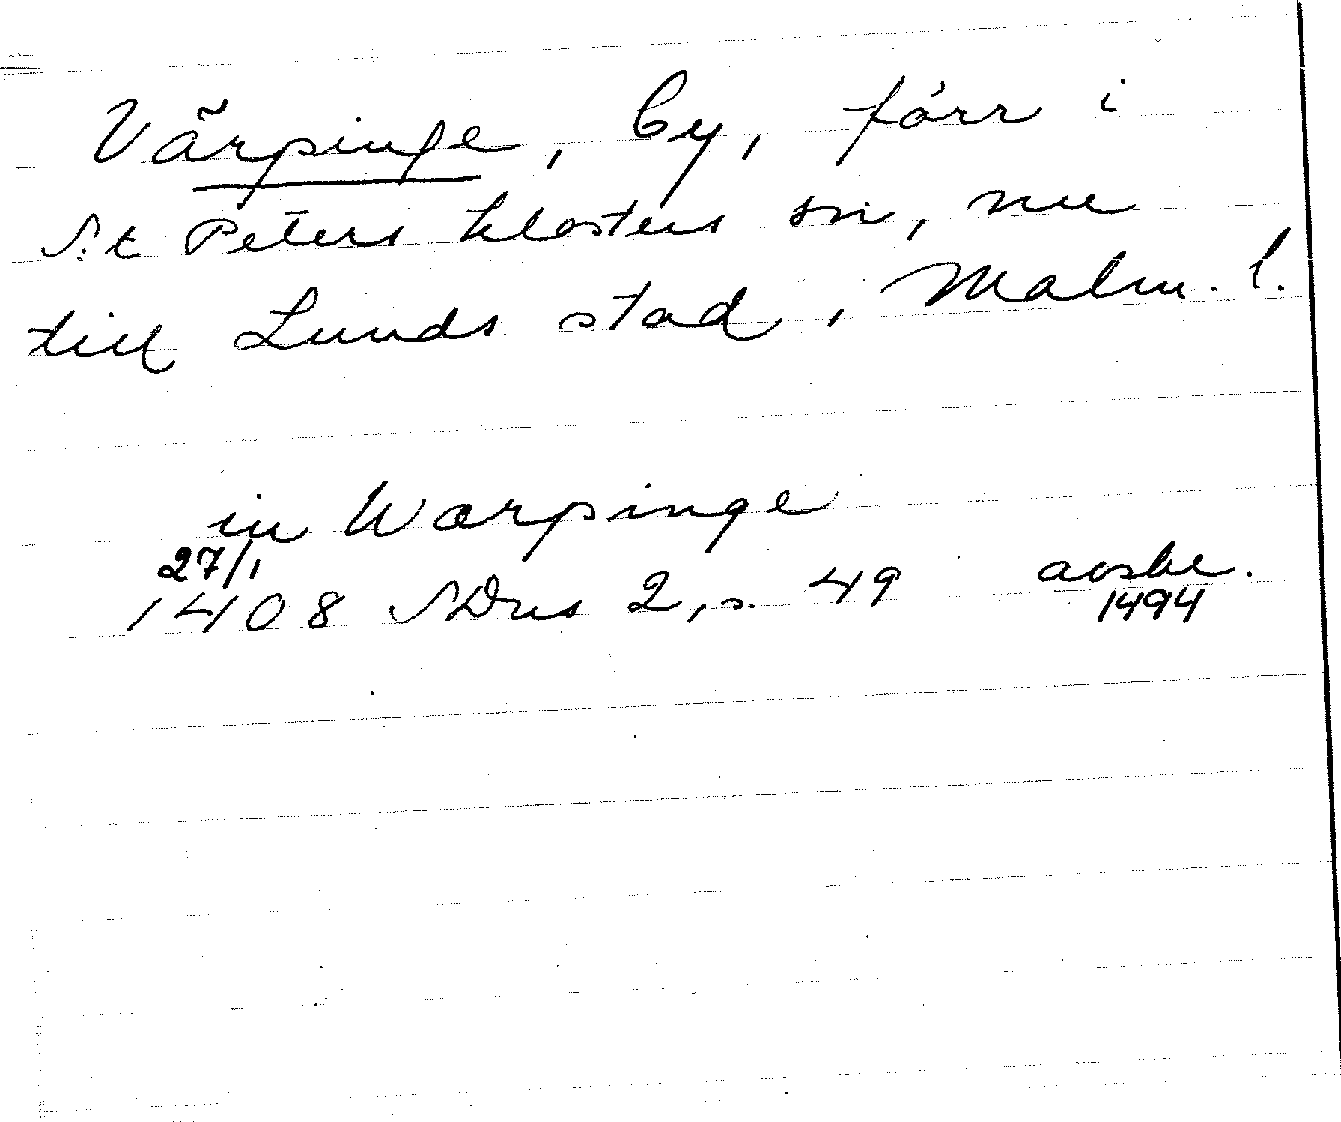 Värpinge, by, förr i
S:t Peters klosters sn, nu
till Lunds stad, Malm. l.
in Wærpinge
27/1
1408 SDns 2, s. 49 avskr.
1494